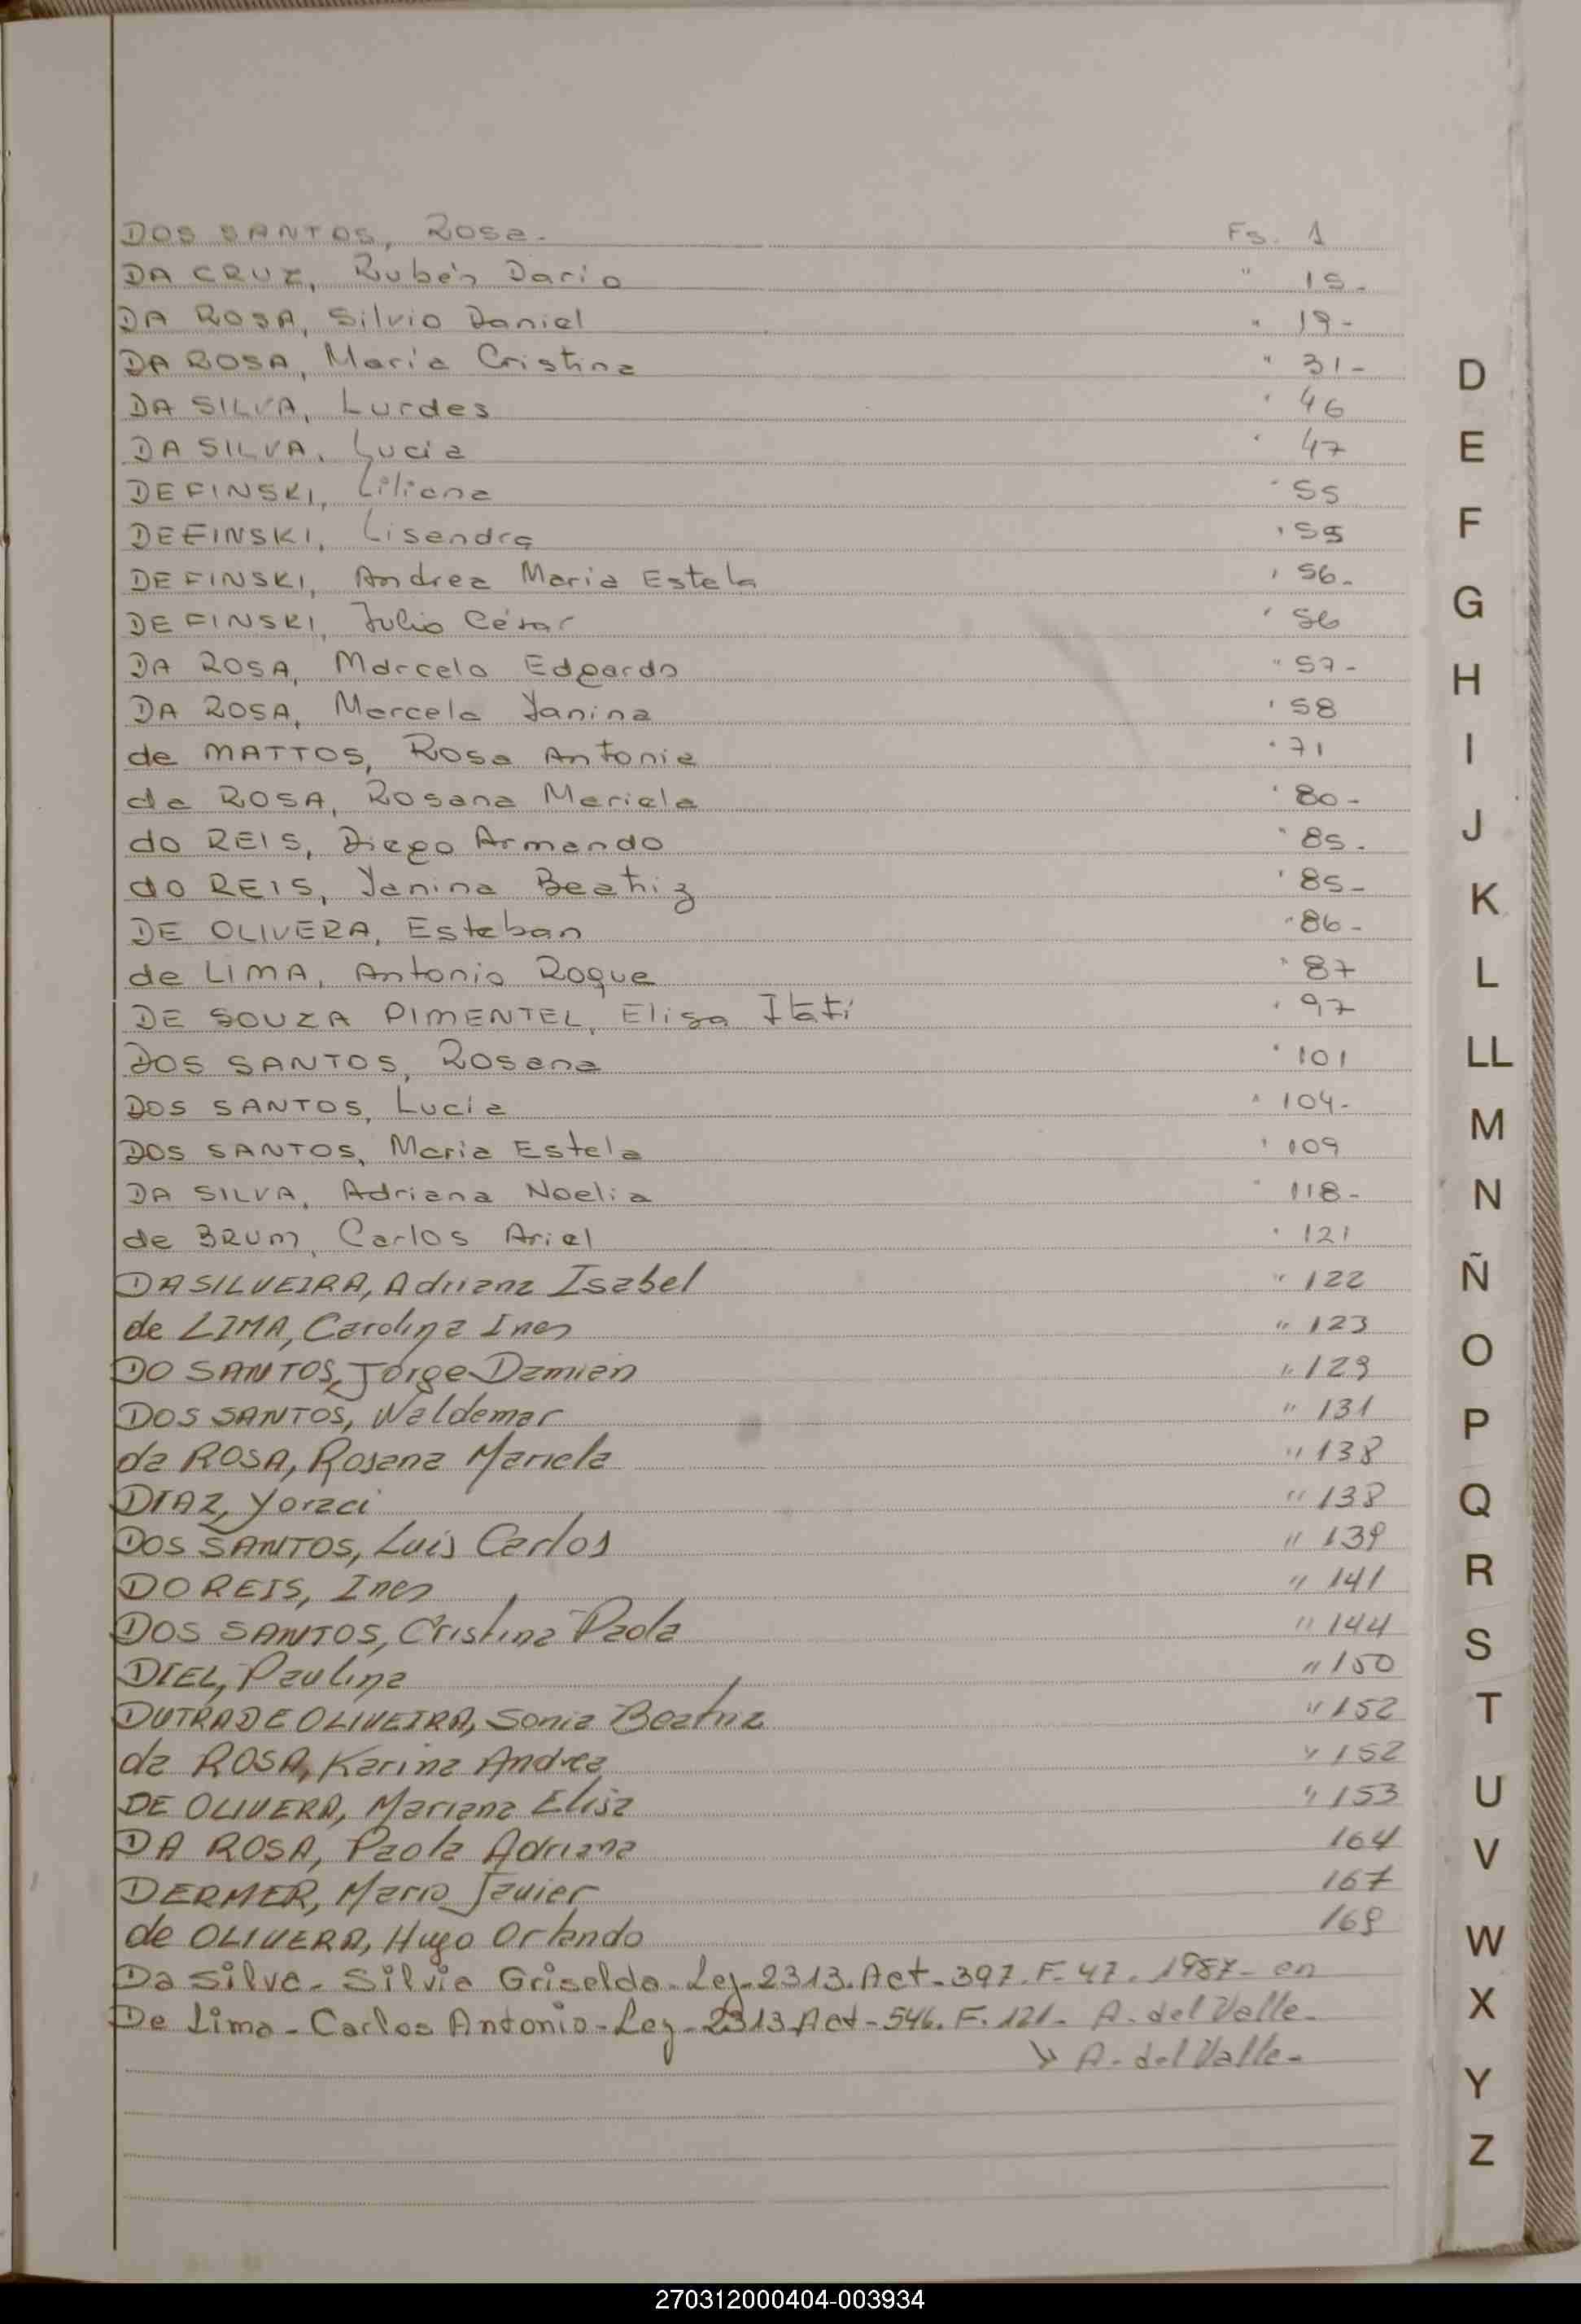 DOS SANTOS, Rosa. Fs. 1
DA CRUZ, Rubén Dario " 15-
DA ROSA, Silvio Daniel " 19-
DA ROSA, Maria Cristina " 31-
DA SILVA, Lurdes " 46
DA SILVA, Lucia " 47
DEFINSKI, Liliana " 55
DEFINSKI, Lisandra " 55
DEFINSKI, Andrea Maria Estela " 56-
DEFINSKI, Julio César " 56
DA ROSA, Marcelo Edgardo " 57-
DA ROSA, Marcela Yanina " 58
de MATTOS, Rosa Antonia " 71
da ROSA, Rosana Mariela " 80-
do REIS, Diego Armando " 85-
do REIS, Yanina Beatriz " 85-
DE OLIVERA, Esteban " 86-
de LIMA, Antonio Roque " 87
DE SOUZA PIMENTEL, Elisa Itatí " 97
DOS SANTOS, Rosana " 101
DOS SANTOS, Lucia " 104-
DOS SANTOS, Maria Estela " 109
DA SILVA, Adriana Noelia " 118-
de BRUM, Carlos Ariel " 121
DASILVEIRA, Adriana Isabel " 122
de LIMA, Carolina Ines " 123
DO SANTOS, Jorge Damian " 129
DOS SANTOS, Waldemar " 131
da ROSA, Rosana Mariela " 138
DIAZ, Yoraci " 138
DOS SANTOS, Luis Carlos " 139
DO REIS, Ines " 141
DOS SANTOS, Cristina Paola " 144
DIEL, Paulina " 150
DUTRA DE OLIVEIRA, Sonia Beatriz " 152
da ROSA, Karina Andrea " 152
DE OLIVERA, Mariana Elisa " 153
DA ROSA, Paola Adriana 164
DERMER, Mario Javier 167
de OLIVERA, Hugo Orlando 169
Da Silva- Silvia Griselda- Ley-2313. Act- 397. F- 47. 1987- en
De Lima- Carlos Antonio- Ley- 2313 Act- 546. F. 121- A. del Valle-
A- del Valle-
D
E
F
G
H
I
J
K
L
LL
M
N
Ñ
O
P
Q
R
S
T
U
V
W
X
Y
Z
270312000404-003934